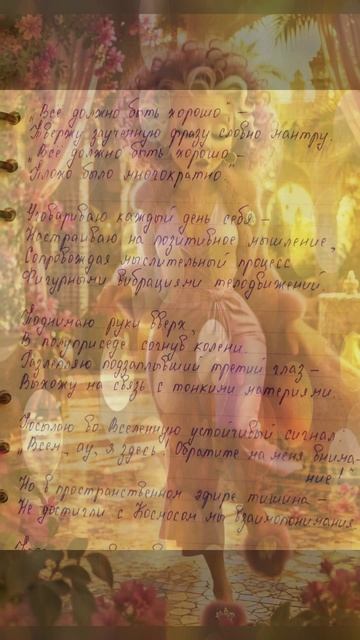 „Всё должно быть хорошо" –
Твержу заученную фразу словно мантру.
„Всё должно быть хорошо" –
Плохо было многократно.
Уговариваю каждый день себя –
Настраиваю на позитивное мышление,
Сопровождая мыслительный процесс
Фигурными вибрациями телодвижений.
Поднимаю руки вверх,
В полуприседе согнув колени.
Разлепляю подзаплывший третий глаз –
Выхожу на связь с тонкими материями.
Посылаю во Вселенную устойчивый сигнал
„Всем, ау, я здесь! Обратите на меня внима-
ние!"
Но в пространственном эфире тишина –
Не достигли с Космосом мы взаимопонимания